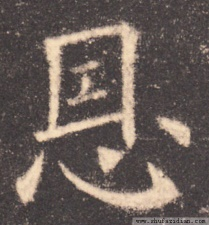 恩
www.shufazidian.com